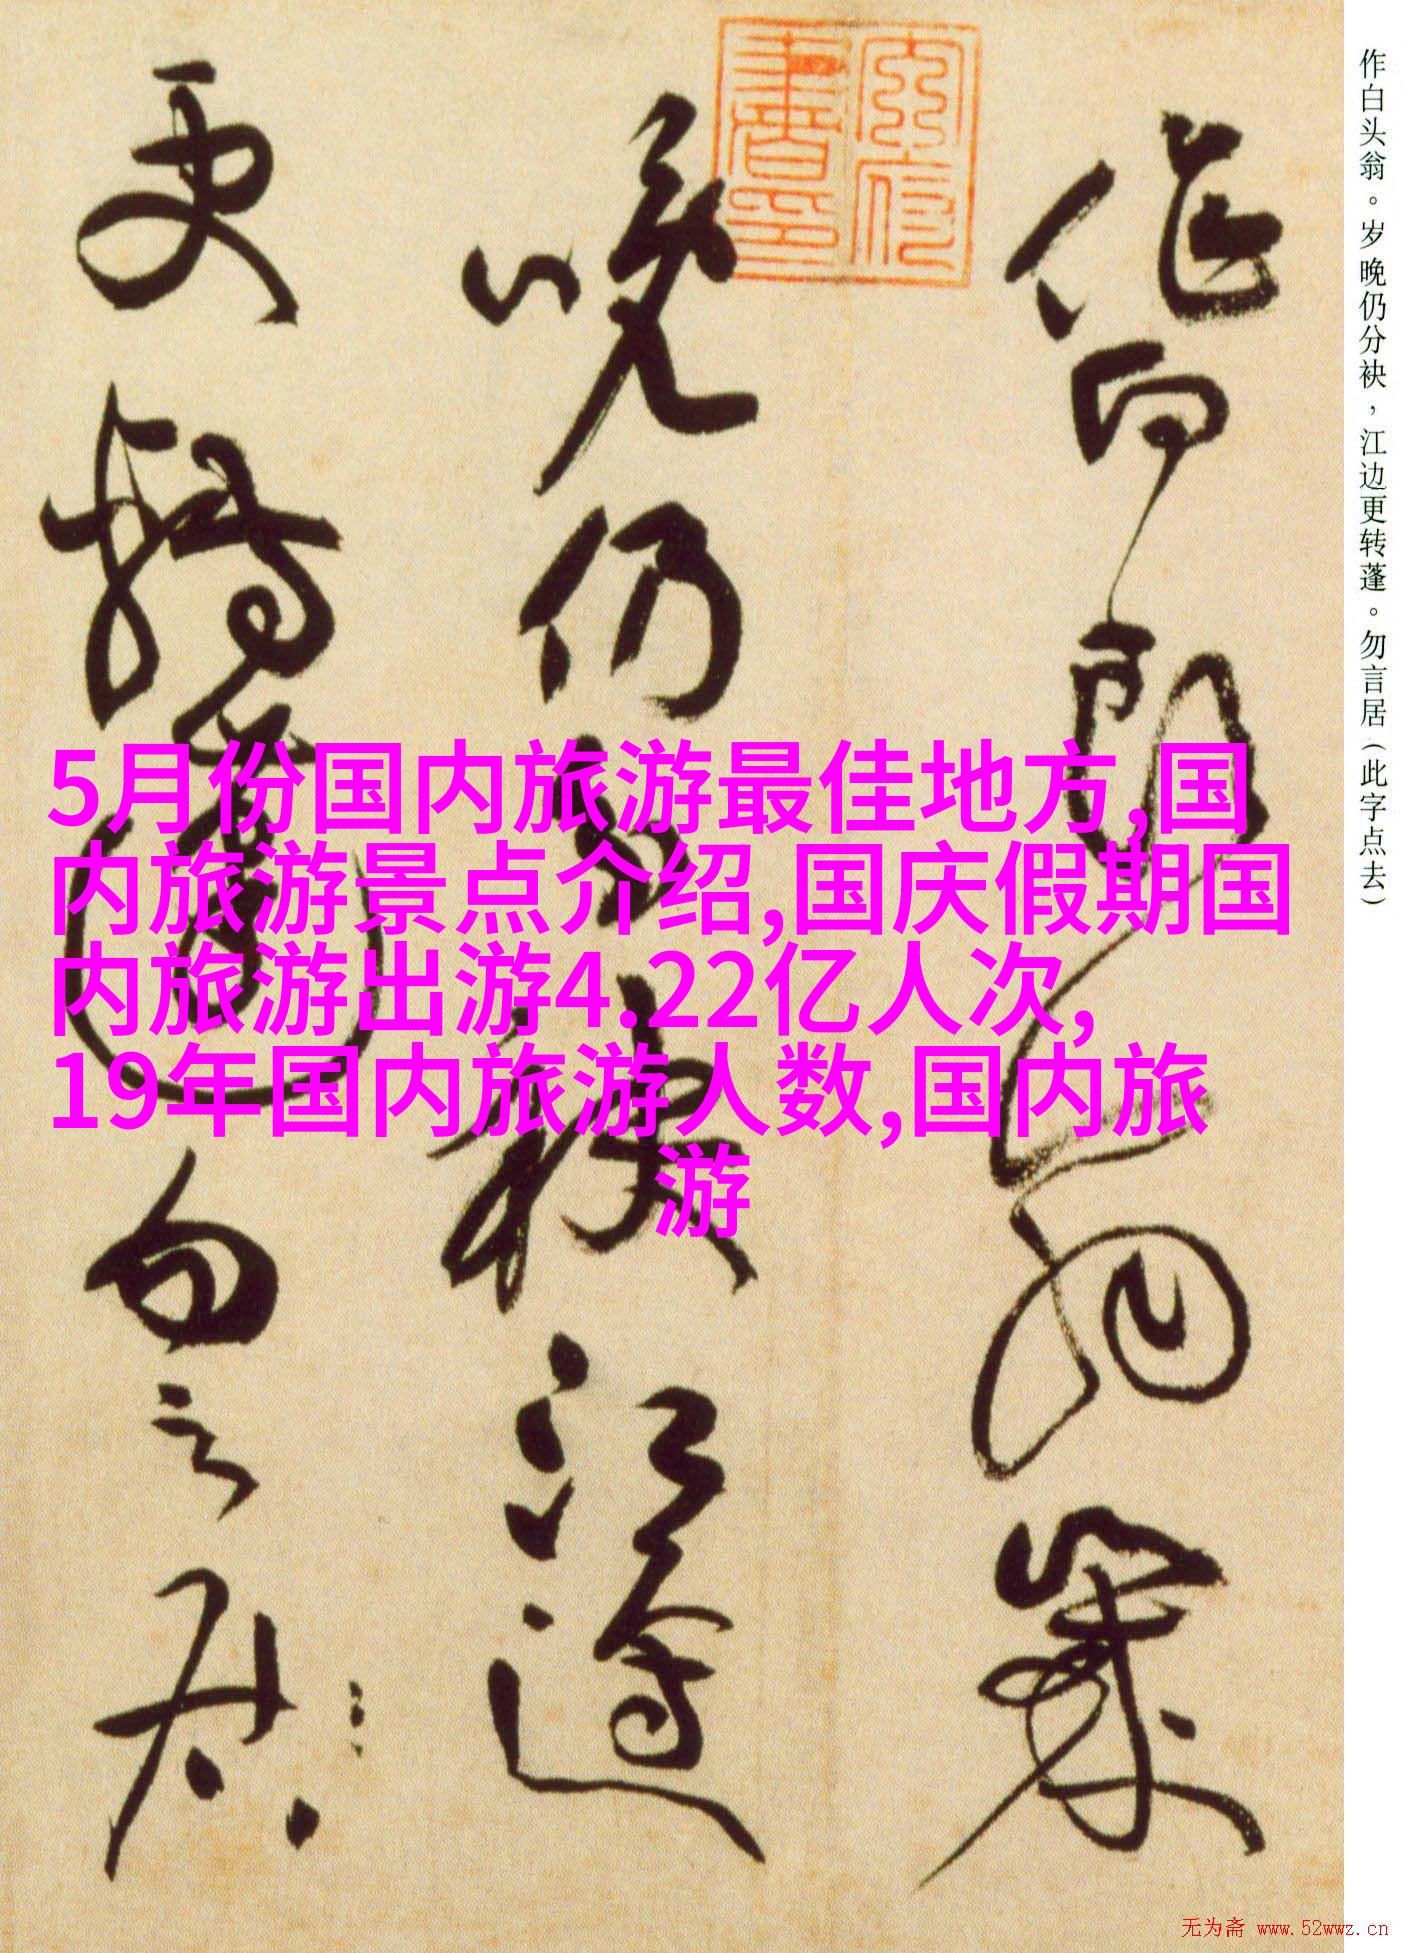 作白頭翁歲
晚仍分袂江邊
更轉蓬勿言居
作白头翁。岁晚仍分袂，江边更转蓬。勿言居(此字点去)
5月份国内旅游最佳地方,国
内旅游景点介绍,国庆假期国
内旅游出游4.22亿人次,
19年国内旅游人数,国内旅
游
无为斋 www.52wwz.cn